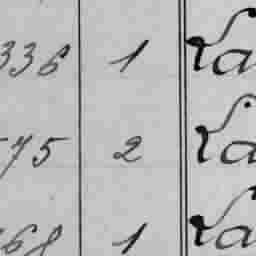 336 1 La
575 2 La
168 1 La